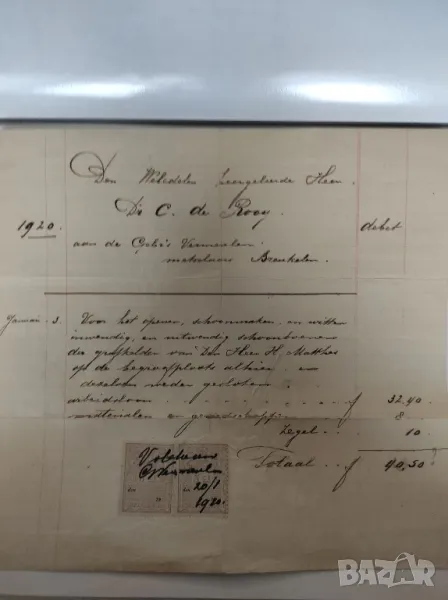 Den Weledelen zeergeleerde Heer
Dr C. de Rooy.
1920. debet
aan de Gebrs Vermeulen
metselaars Breukelen.
Januari 3. Voor het openen, schoonmaken en witten
inwendig, en uitwendig schoonboenen
der grafkelder van Den Heer H. Matthes
op de begraafplaats alhier en
dezelve weder gesloten
arbeidsloon . . . . . . f 32,40
materialen en gereedschappen 8
Zegel . . . 10
Totaal . . f 40,50
Voldaan
Vermeulen
20/1
1920.
Marktplaats